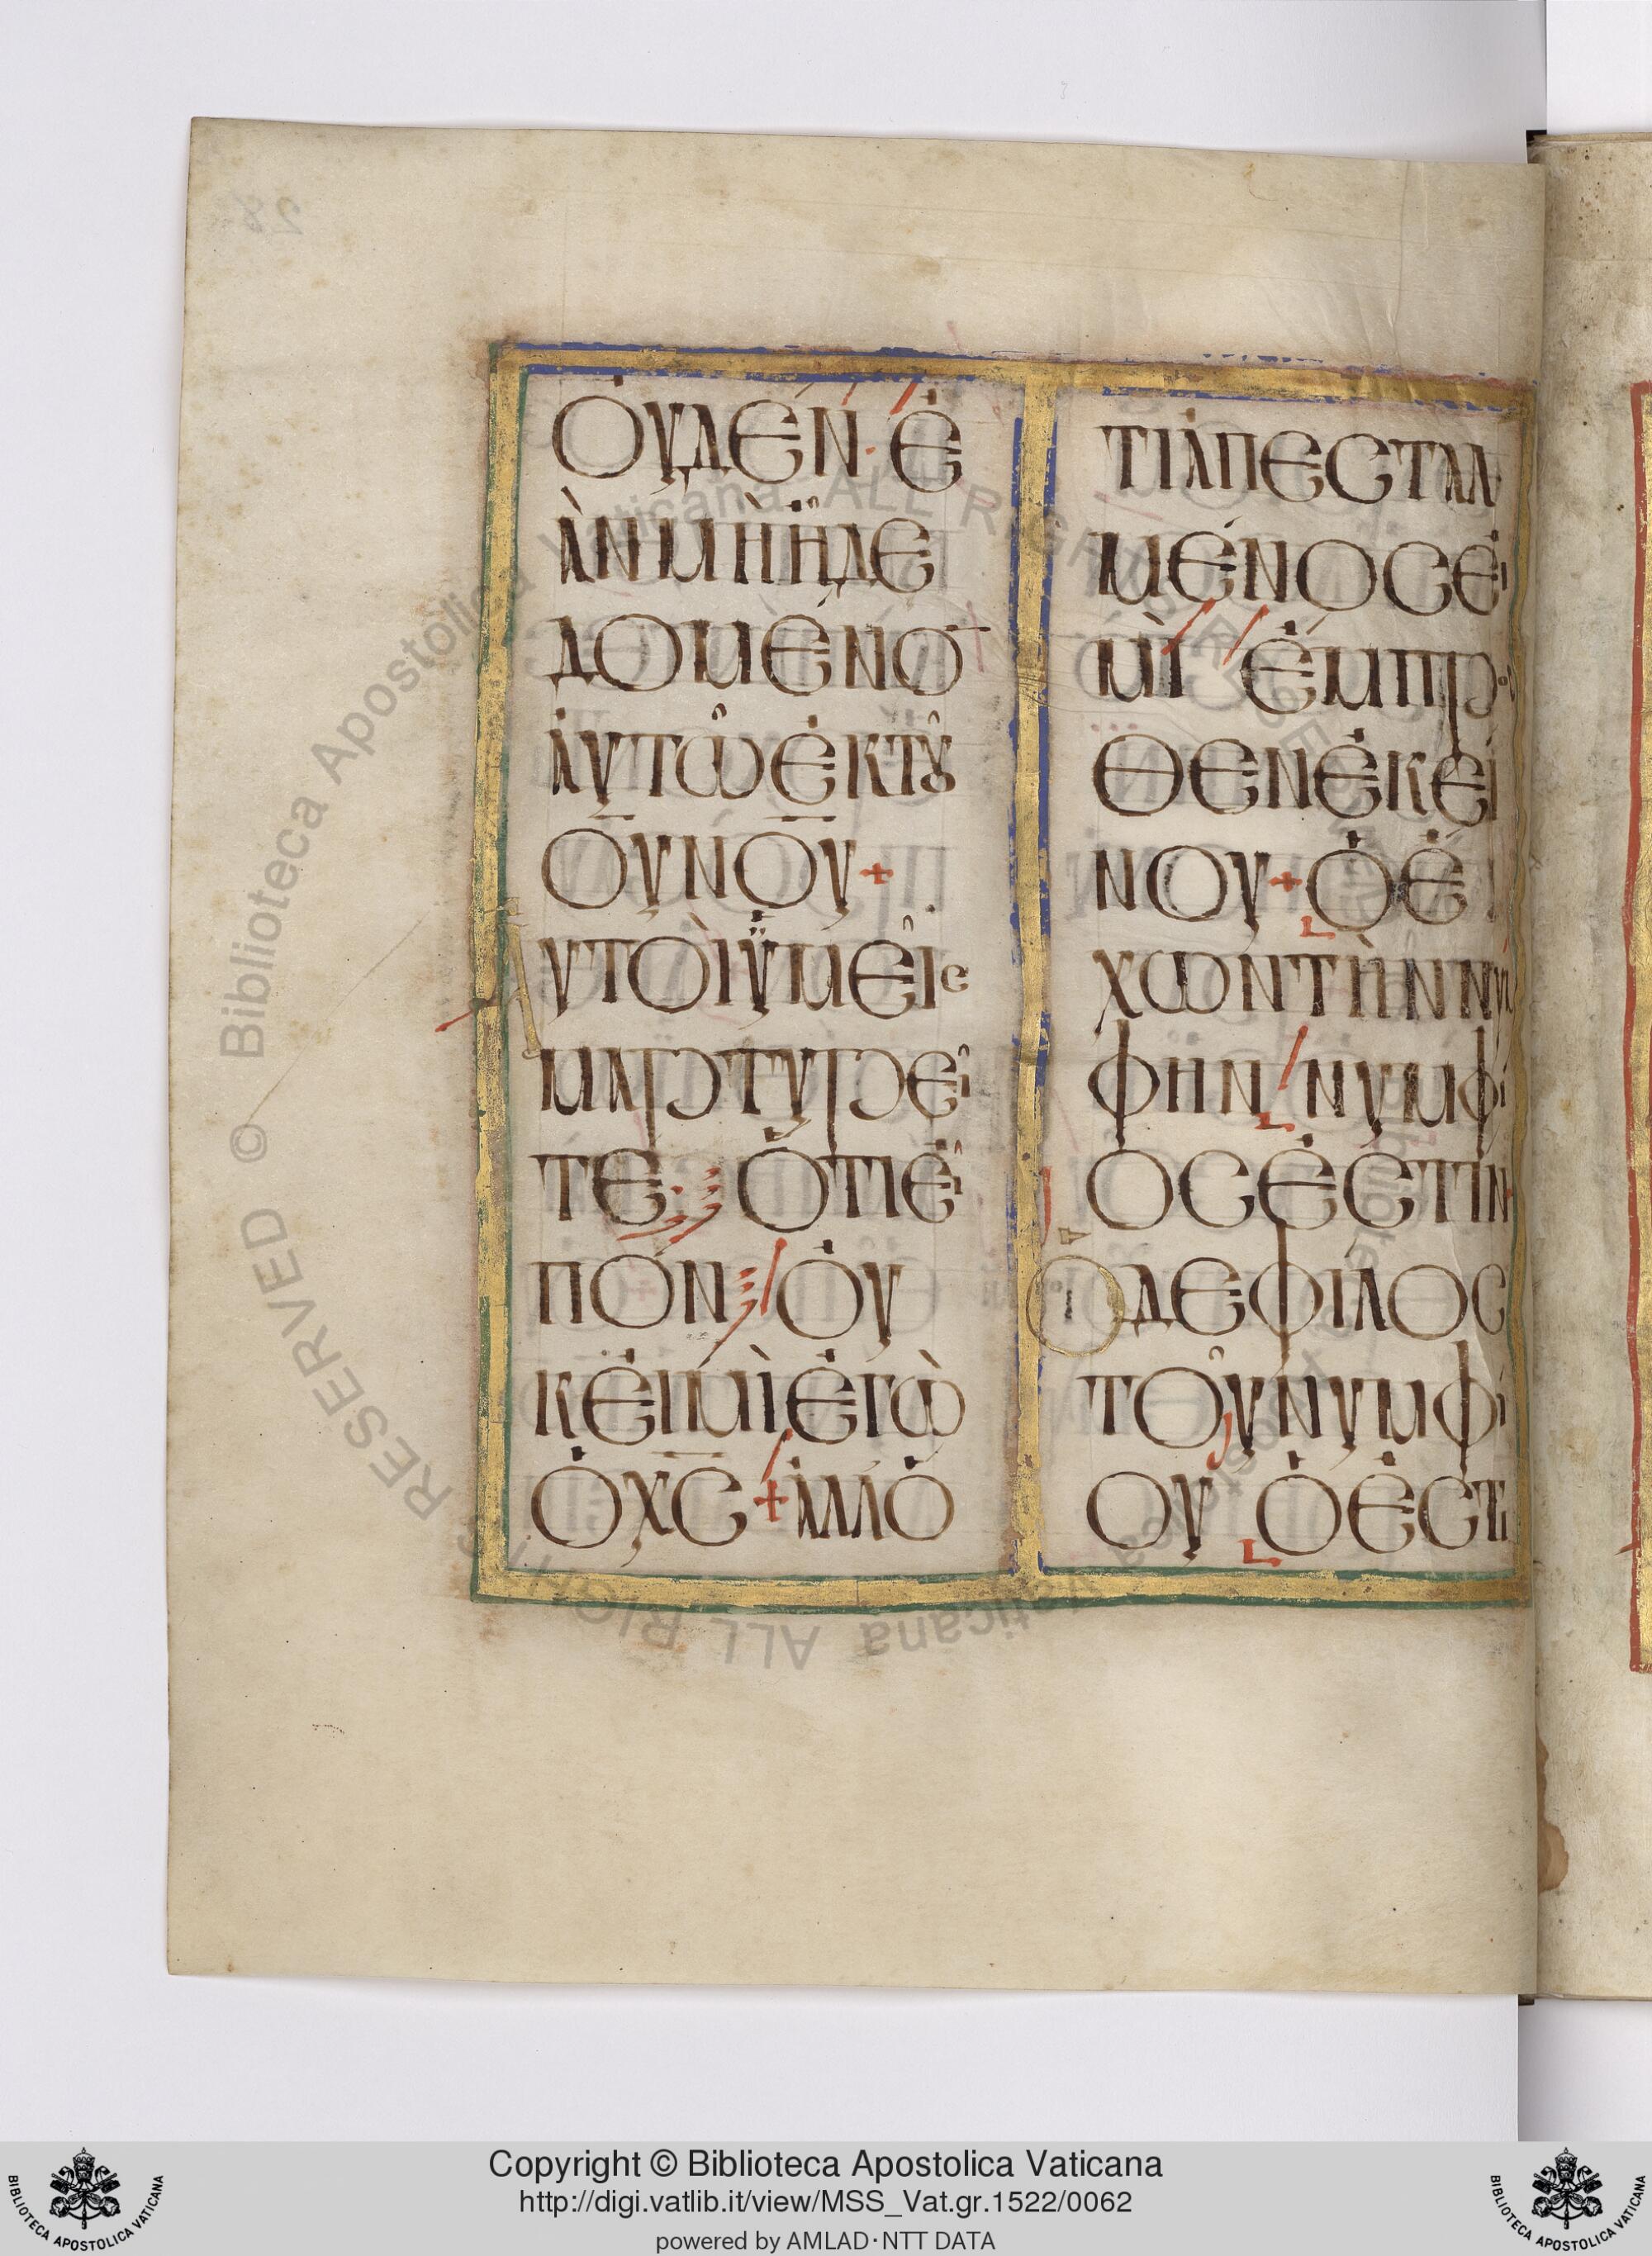 ΟΥΔΕΝ· Ε
ΑΝΜΗΗΔΕ
ΔΟΜΕΝΟ̅
ΑΥΤΩΕΚΤȢ
ΟΥ̅ΝΟΥ̅+
ΑΥΤΟΙΫΜΕΙϹ
ΜΑΡΤΥΡΕΙ
ΤΕ· ΟΤΙΕΙ
ΠΟΝ ΟΥ
ΚΕΙΜΙΕΓΩ
ΟΧ̅Ϲ̅+ΑΛΛΟ
ΤΙΑΠΕϹΤΑΛ
ΜΕΝΟϹΕΙ
ΜΙ ΕΜΠΡΟϹ
ΘΕΝΕΚΕΙ
ΝΟΥ+ΟΕ
ΧΩΝΤΗΝΝΥΜ
ΦΗΝ ΝΥΜΦΙ
ΟϹΕϹΤΙΝ
ΟΔΕΦΙΛΟϹ
ΤΟΥΝΥΜΦΙ
ΟΥ ΟΕϹΤΙ
Biblioteca Apostolica Vaticana ALL RIGHTS RESERVED ©
Copyright © Biblioteca Apostolica Vaticana
http://digi.vatlib.it/view/MSS_Vat.gr.1522/0062
powered by AMLAD·NTT DATA
BIBLIOTECA APOSTOLICA VATICANA
BIBLIOTECA APOSTOLICA VATICANA